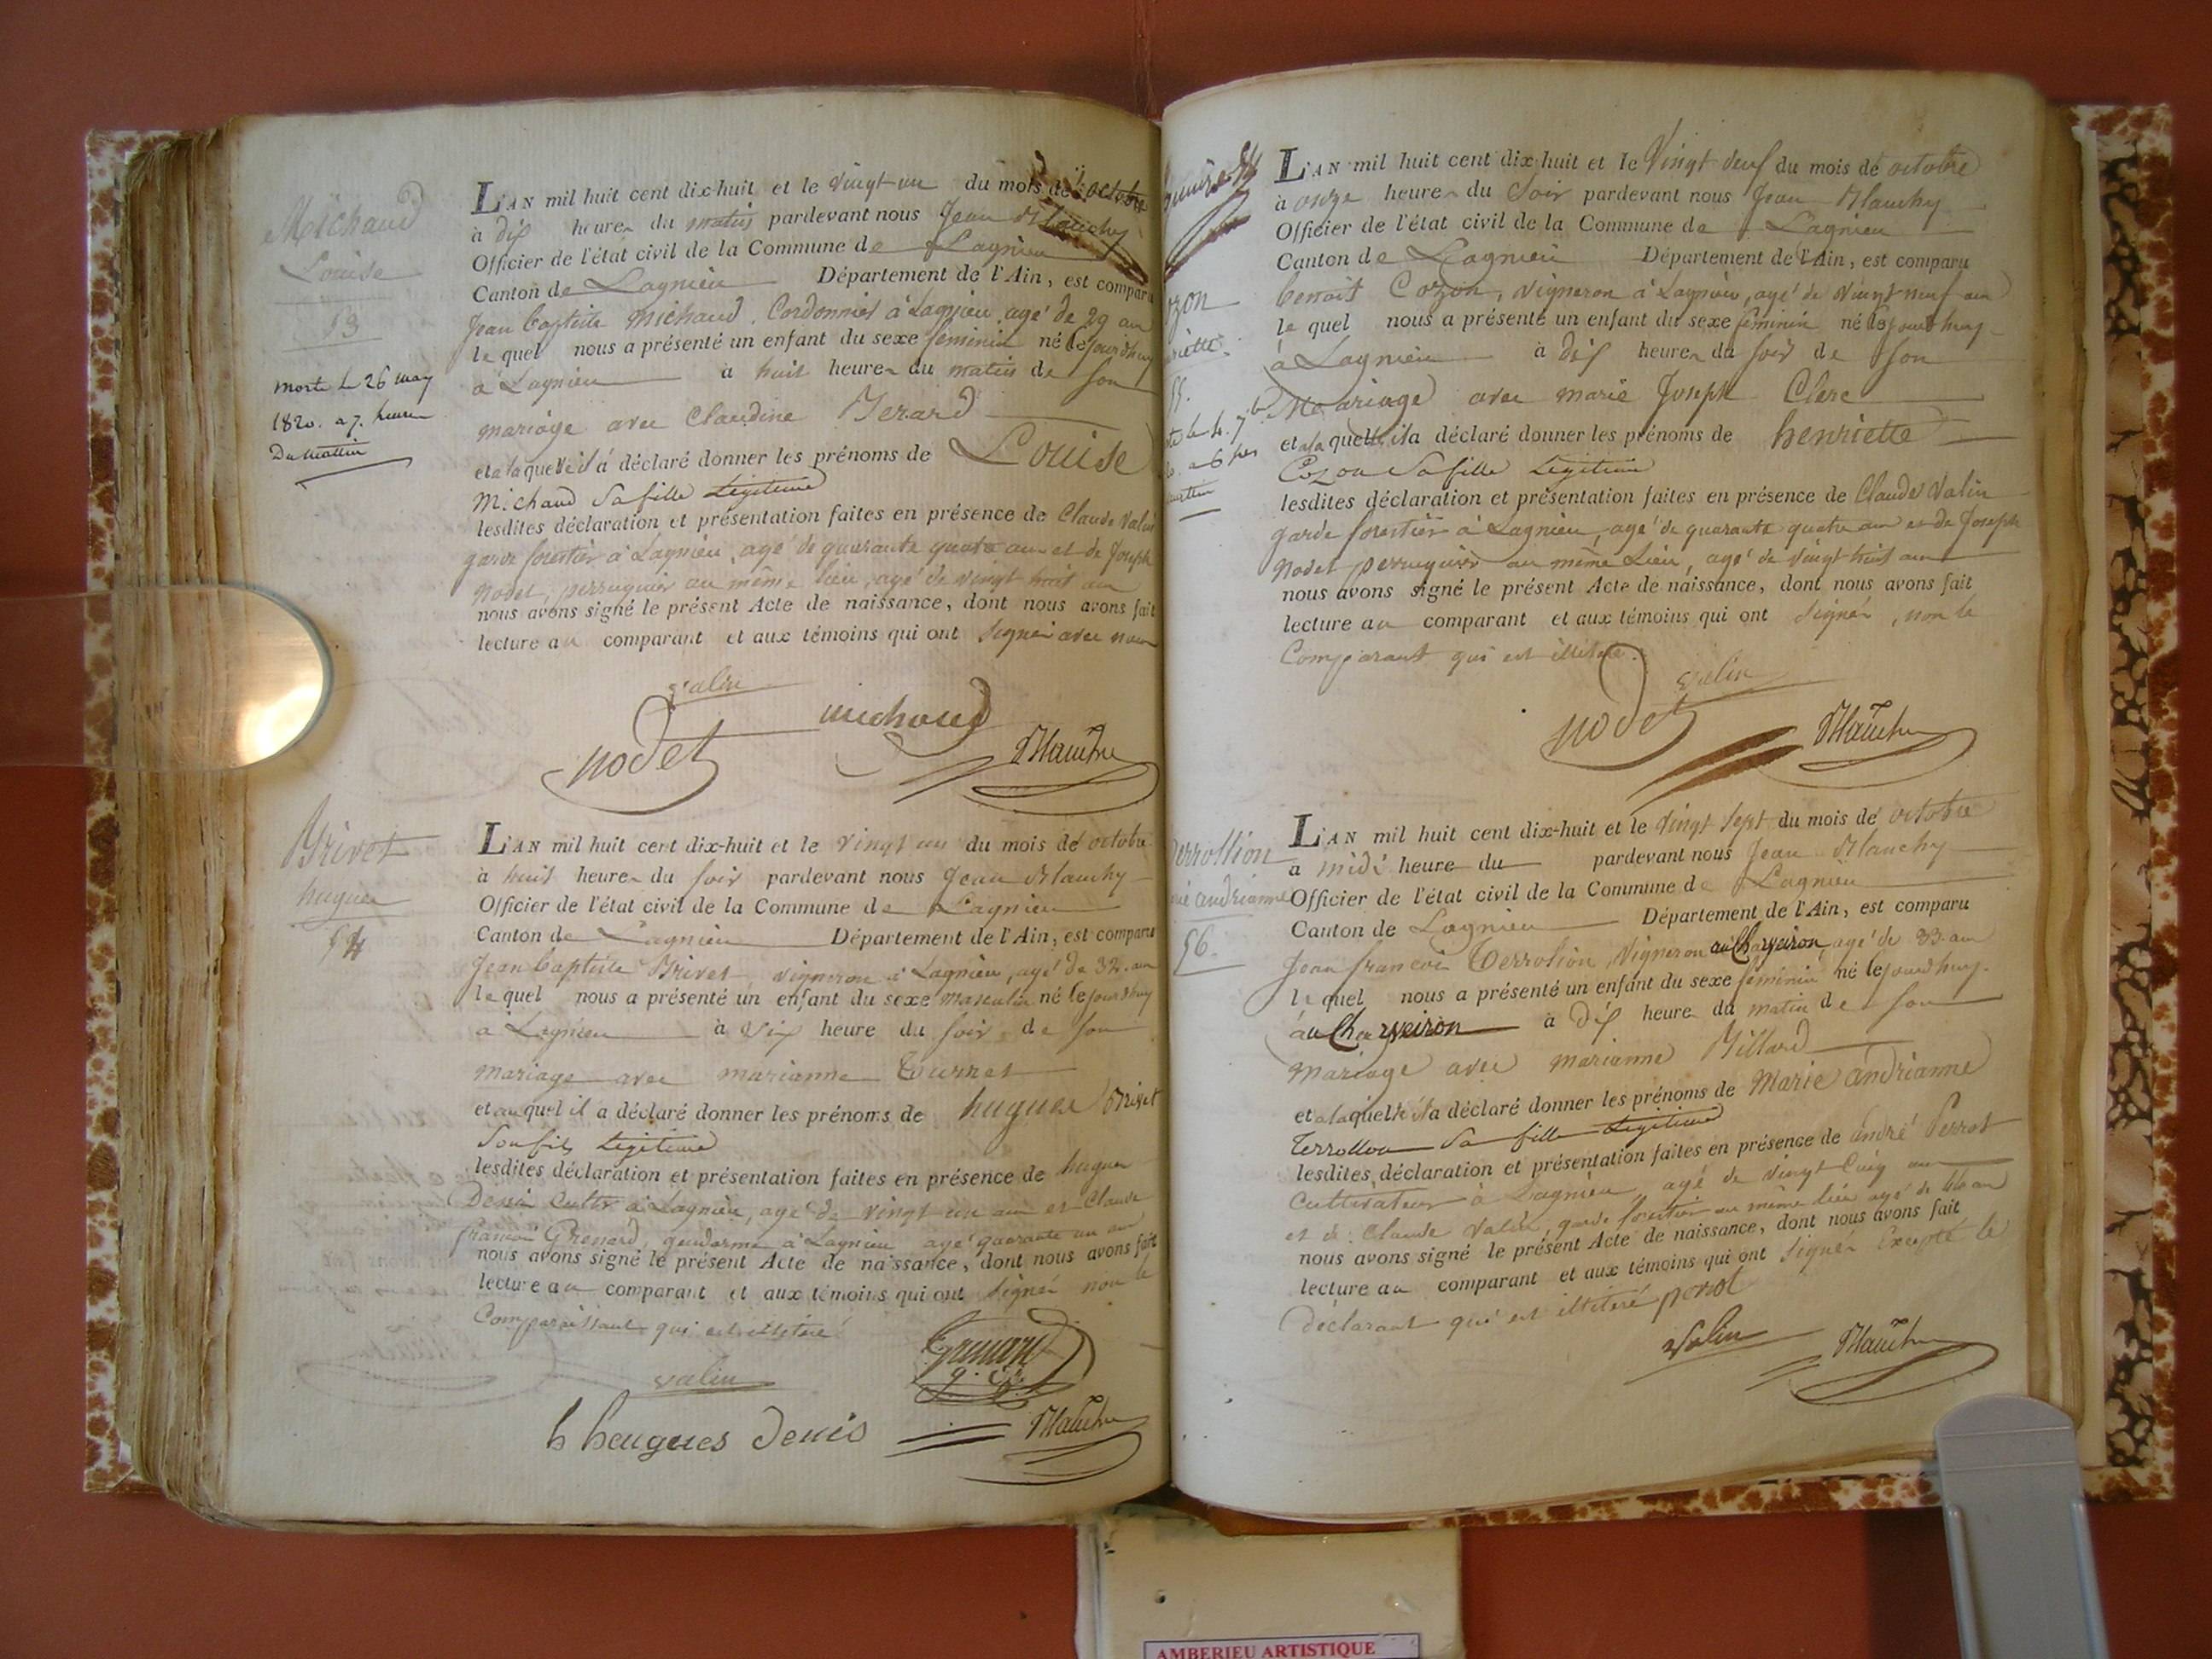 Michaud
Louise
53
morte le 26 may
1820. a 7. heures
Du Mattin
L'AN mil huit cent dix-huit et le vingt un du mois de octobre
à dix heures du matin pardevant nous Jean Blanchy
Officier de l'état civil de la Commune de Lagnieu
Canton de Lagnieu Département de l'Ain, est comparu
Jean baptiste Michaud, Cordonnier à Lagnieu, agé de 29 ans
lequel nous a présenté un enfant du sexe feminin né cejourdhuy
à Lagnieu à huit heures du matin de son
mariage avec Claudine
et a laquelle il a déclaré donner les prénoms de Louise
Michaud Sa fille Légitime
lesdites déclaration et présentation faites en présence de Claude Valin
garde forestier à Lagnieu, agé de quarante quatre ans et de Joseph
Nodet, perruquier au même lieu, agé de vingt huit ans
nous avons signé le présent Acte de naissance, dont nous avons fait
lecture au comparant et aux témoins qui ont signés avec nous
valin
michaud
nodet
Blanchy
Brivet
hugues
54
L'AN mil huit cent dix-huit et le vingt un du mois de octobre
à huit heures du soir pardevant nous Jean Blanchy
Officier de l'état civil de la Commune de Lagnieu
Canton de Lagnieu Département de l'Ain, est comparu
Jean baptiste Brivet, vigneron à Lagnieu, agé de 32 ans
lequel nous a présenté un enfant du sexe masculin né cejourdhuy
à Lagnieu à heure du soir de son
mariage avec marianne Tournet
et auquel il a déclaré donner les prénoms de hugues Brivet
Son fils Légitime
lesdites déclaration et présentation faites en présence de hugues
Denis Cultr à Lagnieu, agé de vingt un ans et Claude
françois Grenard, gendarme à Lagnieu agé quarante un ans
nous avons signé le présent Acte de naissance, dont nous avons fait
lecture au comparant et aux témoins qui ont signés non le
Comparaissant qui est illitéré
valin
Grenard
h heugues denis
Blanchy
L'AN mil huit cent dix-huit et le Vingt deuf du mois de octobre
à onze heures du Soir pardevant nous Jean Blanchy
Officier de l'état civil de la Commune de Lagnieu
Canton de Lagnieu Département de l'Ain, est comparu
benoit Cozon, vigneron à Lagnieu, agé de vingt neuf ans
lequel nous a présenté un enfant du sexe feminin né cejourdhuy
à Lagnieu à dix heures du soir de son
Mariage avec marie Joseph Clerc
et a laquelle il a déclaré donner les prénoms de henriette
Cozon Sa fille Légitime
lesdites déclaration et présentation faites en présence de Claude Valin
garde forestier à Lagnieu, agé de quarante quatre ans et de Joseph
Nodet perruquier au même Lieu, agé de vingt huit ans
nous avons signé le présent Acte de naissance, dont nous avons fait
lecture au comparant et aux témoins qui ont signés, non le
Comparant qui est illitéré.
valin
nodet
Blanchy
56
L'AN mil huit cent dix-huit et le vingt sept du mois de octobre
à midi heure du pardevant nous Jean Blanchy
Officier de l'état civil de la Commune de Lagnieu
Canton de Lagnieu Département de l'Ain, est comparu
Jean francois Terrolion, Vigneron au Charveiron, agé de 33 ans
lequel nous a présenté un enfant du sexe feminin né cejourdhuy
au Charveiron à dix heure du matin de son
Mariage avec marianne Billard
et a laquelle il a déclaré donner les prénoms de Marie andrianne
Terrollion Sa fille Légitime
lesdites déclaration et présentation faites en présence de andré Perrot
Cultivateur à Lagnieu, agé de vingt Cinq ans
et de Claude Valin, garde forestier au même lieu agé de 44 ans
nous avons signé le présent Acte de naissance, dont nous avons fait
lecture au comparant et aux témoins qui ont signés Excepté le
déclarant qui est illitéré perrot
Valin
Blanchy
AMBERIEU ARTISTIQUE